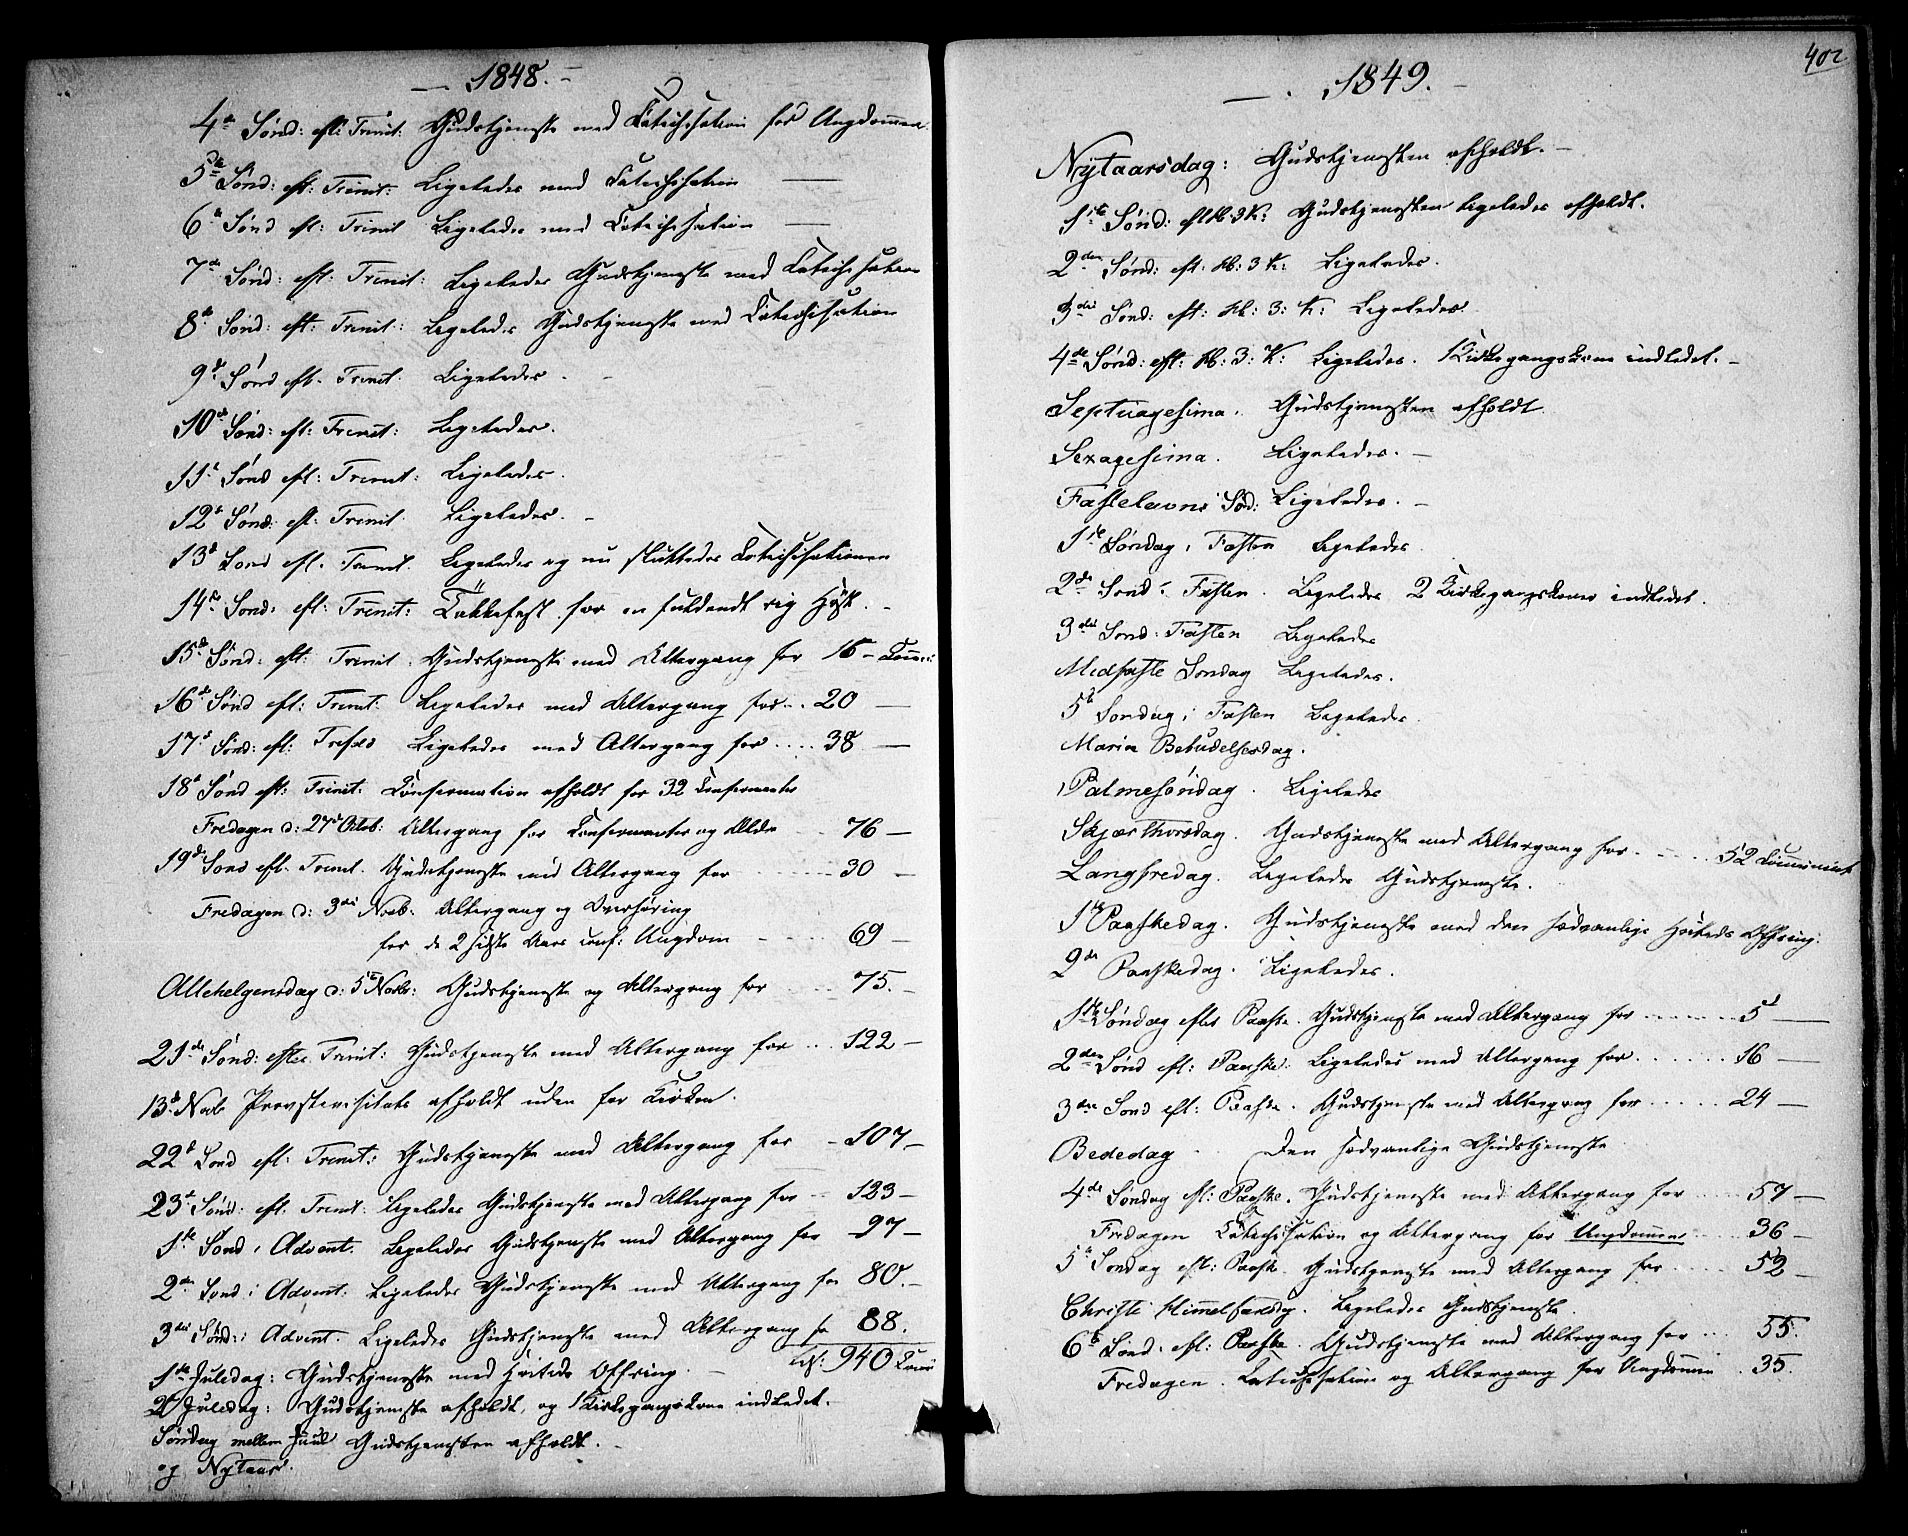 1848.
4de Sønd: eft: Trinit: Gudstjeneste med Catechisation for Ungdommen
5te Sønd: eft: Trinit: Ligeledes med Catechisation
6te Sønd eft: Trinit Ligeledes med Catechisation
7de Sønd: eft: Trinit: Ligeledes Gudstjeneste med Catechisation
8de Sønd: eft: Trinit: Ligeledes Gudstjeneste med Catechisation
9de Sønd eft. Trinit. Ligeledes.
10de Sønd: eft: Trinit: Ligeledes.
11te Sønd eft: Trinit: Ligeledes.
12te Sønd: eft: Trinit. Ligeledes. –
13de Sønd eft. Trinit. Ligeledes og nu sluttedes Catechisationen
14de Sønd: eft: Trinit: Takkefest for en fuldendt rig Høst. –
15de Sønd: eft: Trinit: Gudstjeneste med Altergang for 16 –
16de Sønd eft: Trinit: Ligeledes med Altergang for... 20 —
17de Sønd: eft: Ligeledes med Altergang for .... 38 —
18de Sønd eft: Trinit: Confirmation afholdt for 32 Confirmenter
Fredagen d: 27de Octob: Altergang for Confirmenter og Ældre 76 —
19de Sønd eft. Trinit. Gudstjeneste med Altergang for 30 –
Fredagen d: 3die Novb: Altergang og Overhøring
for de 2 sidste Aars conf: Ungdom 69 –
Allehelgensdag d: 5te Novbr: Gudstjeneste og Altergang for 75. –
21de Sønd: efter Trinit: Gudstjeneste med Altergang for ... 122 –
13de Novb Provstevisitats afholdt uden for Kirken.
22de Sønd eft: Trinit: Gudstjeneste med Altergang for – 107 –
23de Sønd: eft. Trinit: Ligeledes Gudstjeneste med Altergang for 123 –
1ste Sønd i Advent. Ligeledes Gudstjeneste med Altergang for 97 –
2den Sønd: i Advent: Ligeledes Gudstjeneste med Altergang for 80. –
3die Sønd: i Advent. Ligeledes Gudstjeneste med Altergang for 88.
940
1ste Juledag: Gudstjeneste med Høitids Offring. –
2den Juledag: Gudstjeneste afholdt, og 1 Kirkegangskone indledet.
Søndag mellem Juul Gudstjenesten afholdt. –
og Nytaar.
402
1849.
Nytaarsdag: Gudstjenesten afholdt. –
1ste Sønd: eft H: 3 K: Gudstjenesten ligeledes afholdt.
2den Sønd: eft: H: 3 K: Ligeledes.
3die Sønd: eft: H: 3: K: Ligeledes.
4de Sønd: eft: H: 3: K: Ligeledes. 1 Kirkegangskone indledet. –
Septuagesima. Gudstjenesten afholdt.
Sexagesima. Ligeledes. –
Fastelavns Sød: Ligeledes. –
1ste Søndag i Fasten Ligeledes
2den Sønd i Fasten. Ligeledes 2 Kirkegangskoner indledet.
3die Sønd: Fasten Ligeledes
Midfaste Søndag Ligeledes.
5te Søndag i Fasten Ligeledes.
Maria Bebudelsesdag.
Palmesøndag. Ligeledes
Skjærthorsdag. Gudstjeneste med Altergang for. 52
Langfredag. Ligeledes Gudstjeneste.
1ste Paaskedag. Gudstjeneste med den sædvanlige Høitids Offring.
2den Paaskedag. Ligeledes.
1ste Søndag efter Paaske. Gudstjeneste med Altergang for 5 —
2den Sønd eft: Paaske: Ligeledes med Altergang for 16 —
3die Sønd eft: Paaske. Gudstjeneste med Altergang for 24 —
Bededag Den sædvanlige Gudstjeneste
4de Søndag eft: Paaske. Gudstjeneste med Altergang for 57 —
Fredagen Catechisation og Altergang for Ungdommen 36 —
5te Søndag eft: Paaske. Gudstjeneste med Altergang for 52 —
Christi Himmelfartsdg. Ligeledes Gudstjeneste.
6te Sønd. eft: Paaske. Gudstjeneste med Altergang for ... 55.
Fredagen. Catechisation og Altergang for Ungdommen . 35.